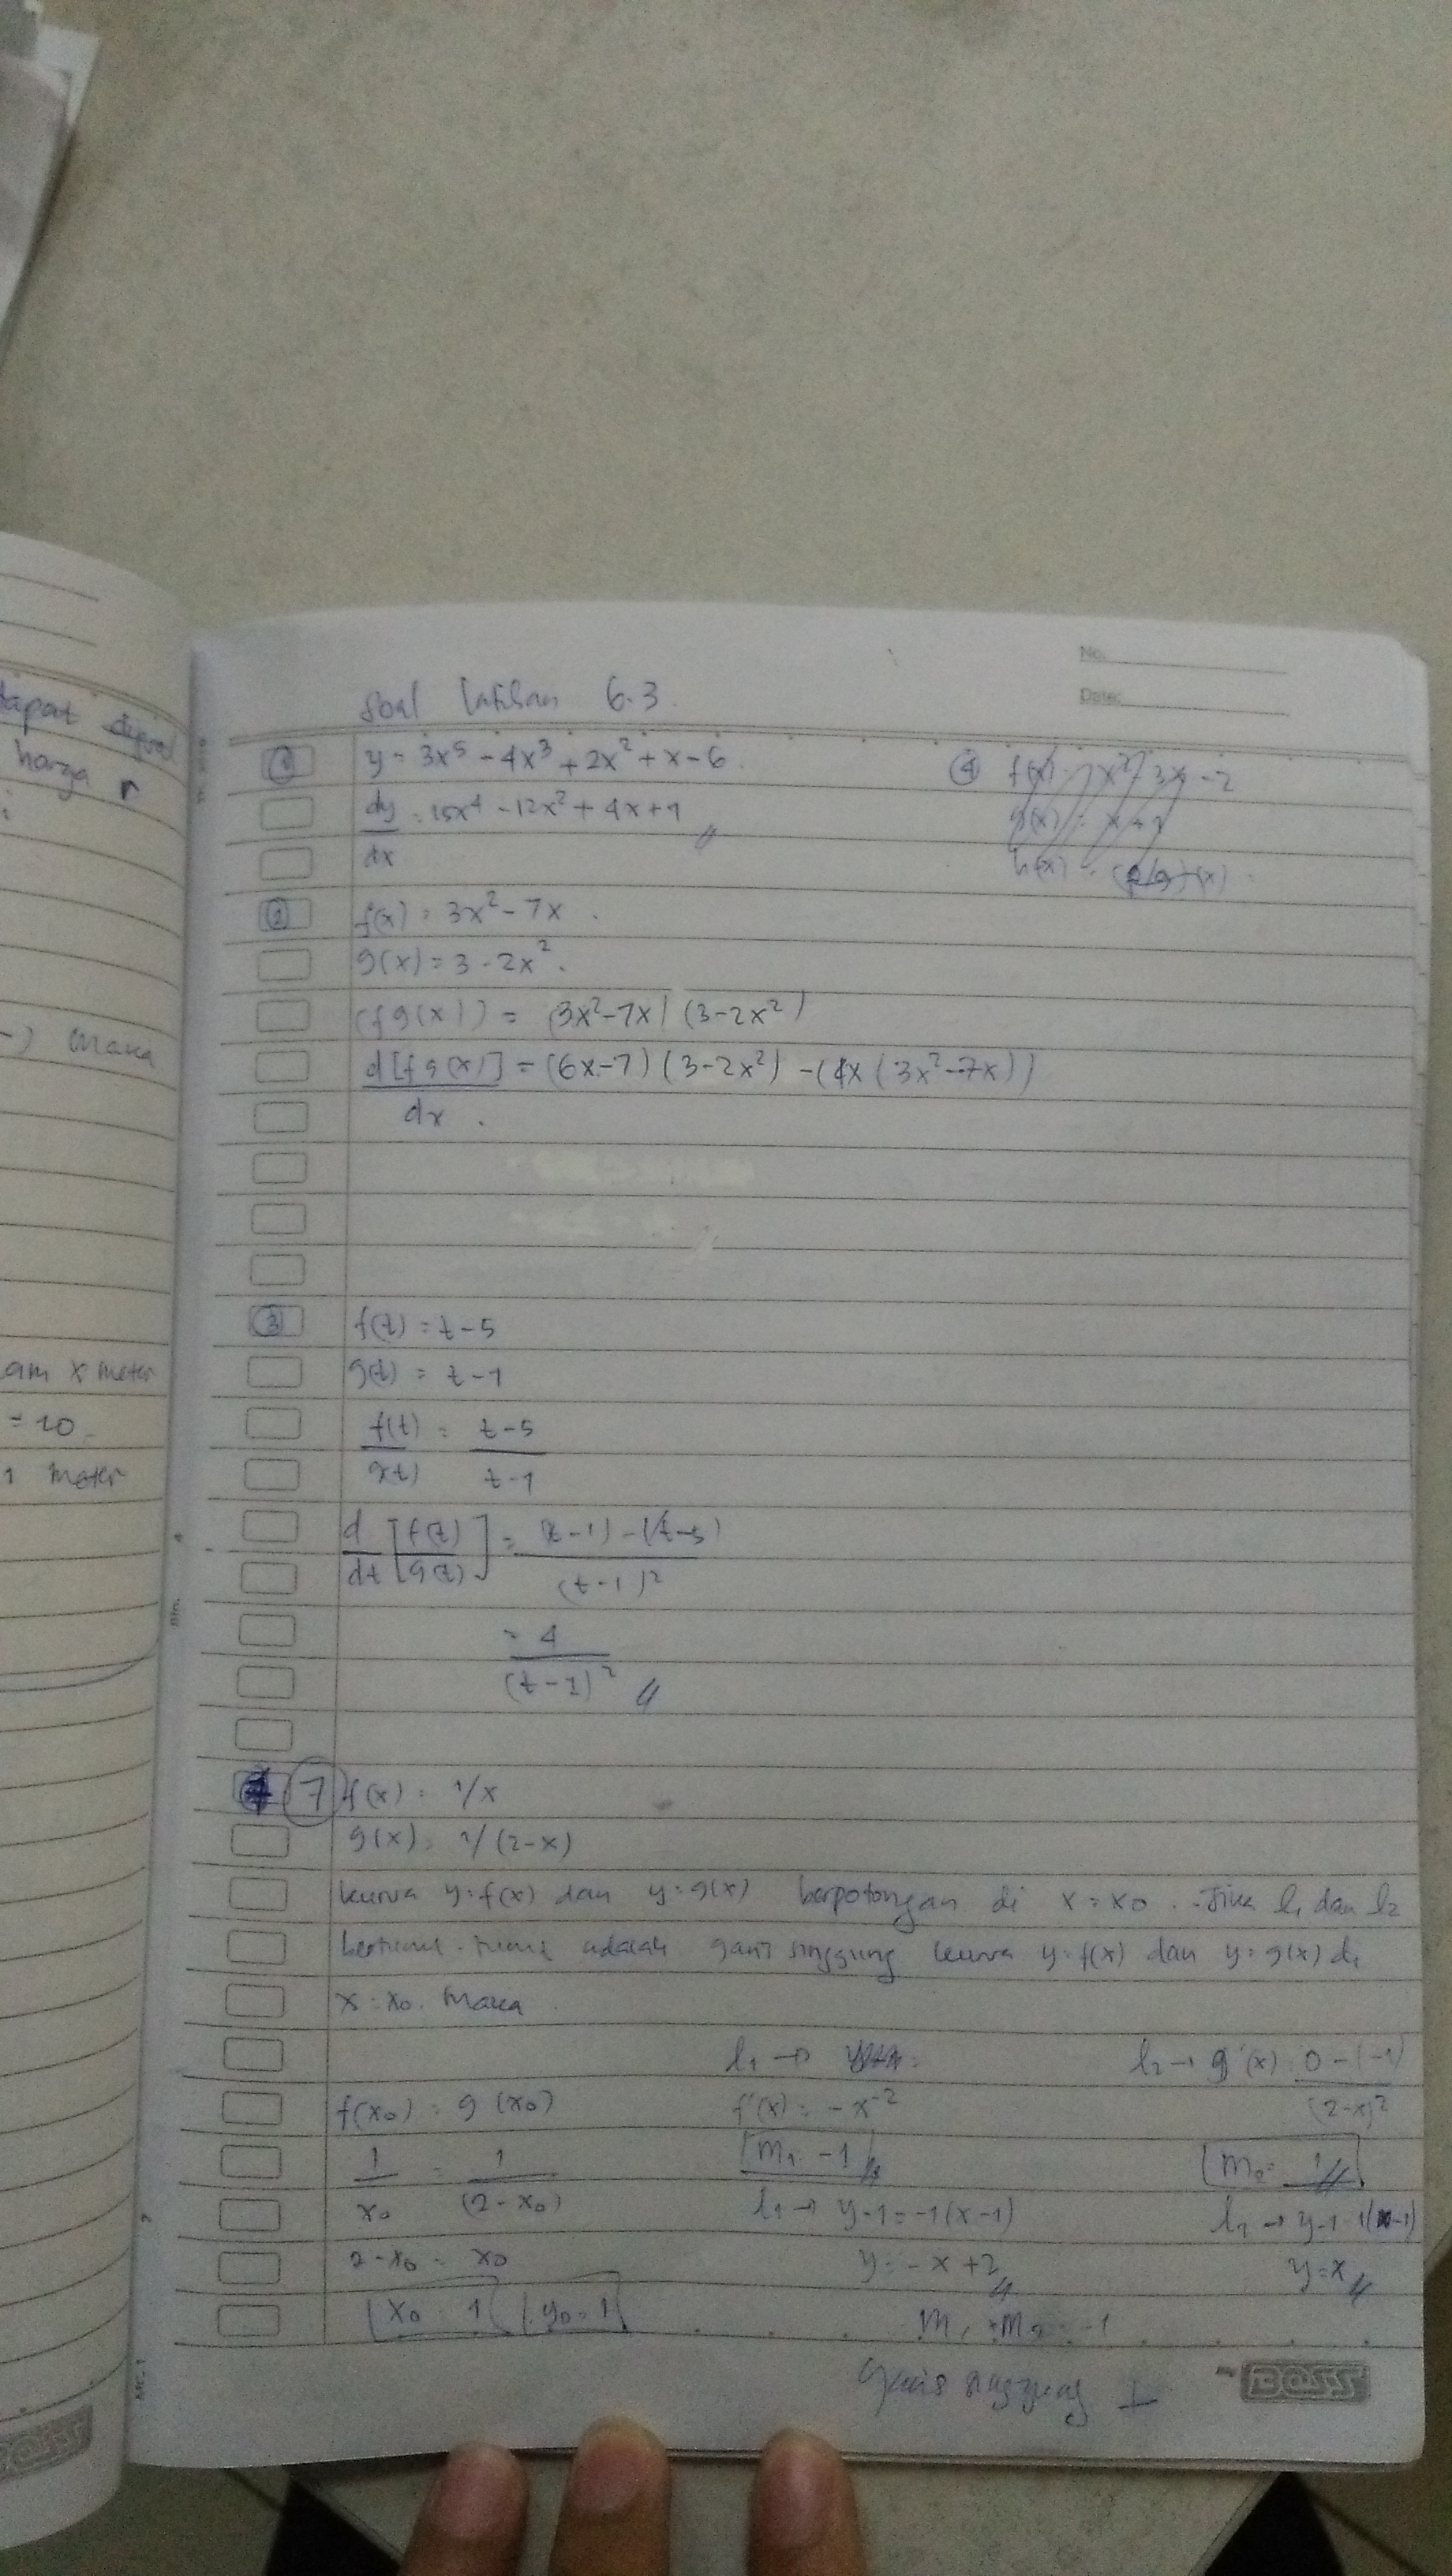 tapat
harga r
-) maka
am x meter
= 10
1 meter
No.
Date:
Soal latihan 6.3.
① y = 3x⁵ - 4x³ + 2x² + x - 6.
dy/dx = 15x⁴ - 12x² + 4x + 1 //
④ f(x) = x² - 3x - 2
g(x) = x + 1
h(x) = (f/g)(x) =
② f(x) = 3x² - 7x.
g(x) = 3 - 2x².
(fg(x)) = (3x² - 7x)(3 - 2x²)
d[fg(x)]/dx = (6x - 7)(3 - 2x²) - (4x(3x² - 7x))
③ f(t) = t - 5
g(t) = t - 1
f(t)/g(t) = (t - 5)/(t - 1)
d/dt [f(t)/g(t)] = (t - 1) - (t - 5)/(t - 1)²
= 4/(t - 1)² //
⑦ f(x) = 1/x
g(x) = 1/(2-x)
kurva y = f(x) dan y = g(x) berpotongan di x = x0. Jika l1 dan l2
adalah garis singgung kurva y = f(x) dan y = g(x) di
x = x0. Maka
f(x0) = g(x0)
1/x0 = 1/(2 - x0)
2 - x0 = x0
x0 = 1 y0 = 1
l1 →
f'(x) = -x⁻²
m1 = -1 //
l1 → y - 1 = -1(x - 1)
y = -x + 2 //
l2 → g'(x) = 0 - (-1)/(2-x)²
m2 = 1 //
l2 → y - 1 = 1(x - 1)
y = x //
m1 · m2 = -1
garis singgung ⊥
BOSS